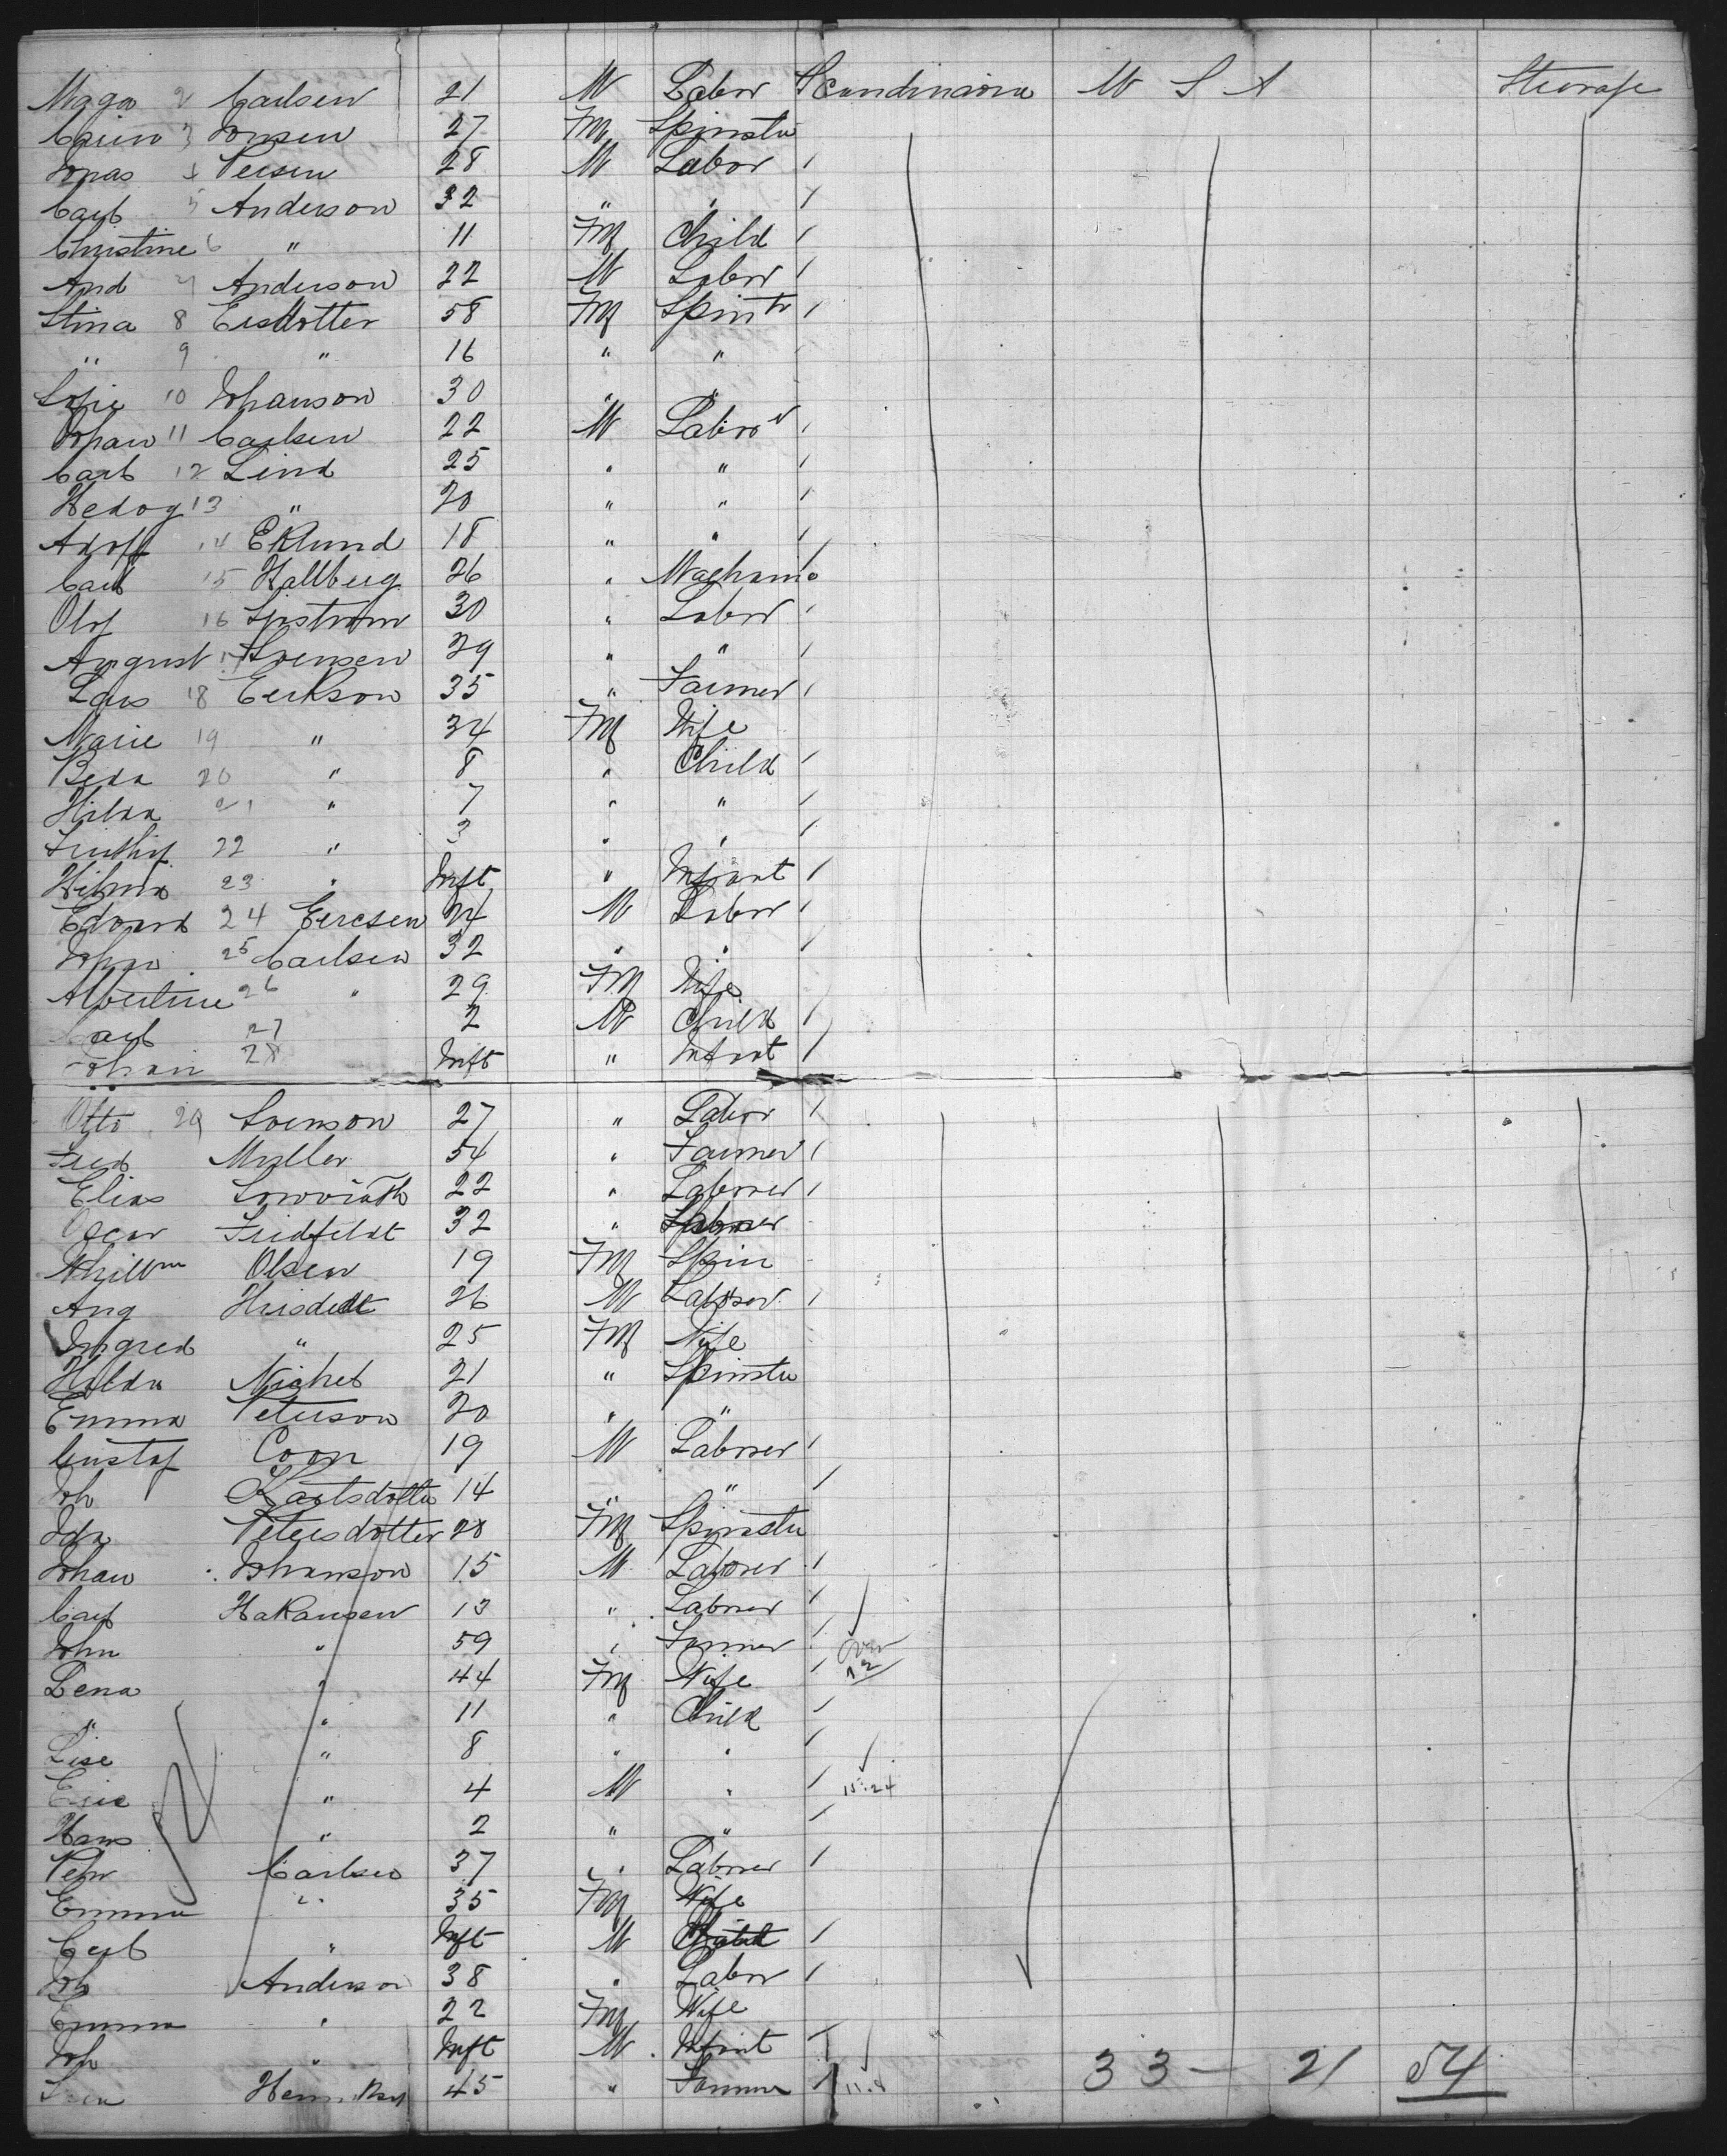 Maga 2 Carlsen 21 M Labor Scandinavia U S A Steerage
Carin 3 Jonsen 27 Fm Spinster
Jonas 4 Persen 28 M Labor /
Carl 5 Anderson 32 " " /
Christine 6 " 11 Fm Child /
And 7 Anderson 22 M Labor /
Stina 8 Ersdotter 58 Fm Spin tr /
" 9 " 16 " "
Sofie 10 Johanson 30 " "
Johan 11 Carlsen 22 M Labor /
Carl 12 Lind 25 " " /
Hedog 13 " 20 " " /
Adolf 14 Eklund 18 " " /
Carl 15 Hallberg 26 "
Olof 16 30 " Labor /
August 17 Svensen 29 " " /
Lars 18 Erikson 35 " Farmer /
Marie 19 " 34 Fm Wife
Beda 20 " 8 " Child /
Hilda 21 " 7 " " /
22 " 3 " " /
Hilma 23 " Inft " Infant /
Edvard 24 Ericsen 24 M Labor /
John 25 Carlsen 32 " " /
Albertine 26 " 29 Fm Wife
Carl 27 2 M Child /
Johan 28 Inft " Infant /
Otto 29 Svenson 27 " Labor /
Fred Muller 54 " Farmer /
Elias 22 " Laborer /
Oscar Fridfeldt 32 " Laborer
Olsen 19 Fm Spin
Aug 26 M Laborer /
Ingred " 25 Fm Wife
Hilda 21 " Spinster
Emma Peterson 20 " "
Gustaf Coon 19 M Laborer /
Joh Karlsdotter 14 " " /
Ida Petersdotter 28 Fm Spinster
Johan Johanson 15 M Laborer /
Carl Hakansen 13 " Laborer /
John " 59 " Farmer /
Lena " 44 Fm Wife / 12
" " 11 " Child /
Lise " 8 " " /
Eric " 4 M " / 15.24
Hans " 2 " " /
Pehr Carlsen 37 " Laborer /
Emma " 35 Fm Wife
Carl " Inft M /
Joh Anderson 38 " Labor /
Emma " 22 Fm Wife
Joh " Inft M Infant /
45 " Farmer / 33 - 21 54